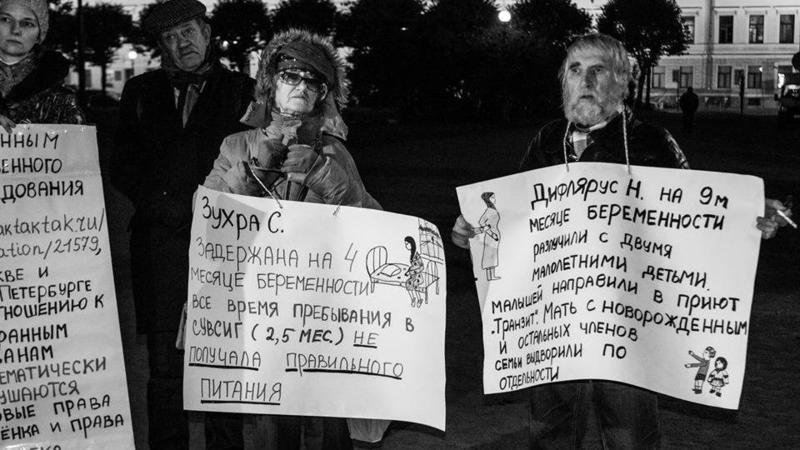 нным
венного
дования
aktaktak.ru/
ation/21579,
кве и
Петербурге
тношению к
ранным
данам
ематически
ушаются
овые права
ёнка и права
Зухра С.
задержана на 4
месяце беременности
все время пребывания в
СУВСИГ (2,5 мес.) не
получала правильного
питания
Дифлярус Н. на 9м
месяце беременности
разлучили с двумя
малолетними детьми.
Малышей направили в приют
"Транзит". Мать с новорожденным
и остальных членов
семьи выдворили по
отдельности